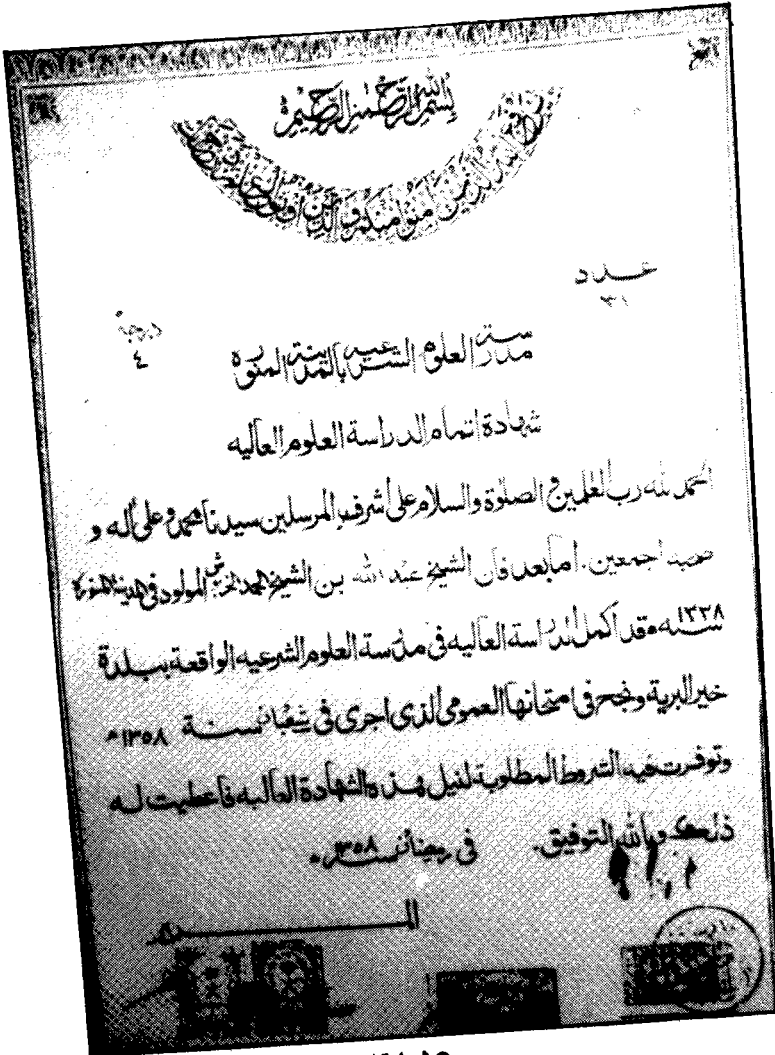 بسم الله الرحمن الرحيم
يرفع الله الذين آمنوا منكم والذين أوتوا العلم درجات
عدد
٣١
درجة
٤
مدرسة العلوم الشرعيه بالمدينة المنوره
شهادة اتمام الدراسة العلوم العاليه
الحمد لله رب العلمين والصلوة والسلام على أشرف المرسلين سيدنا محمد وعلى آله و
صحبه اجمعين. اما بعد فان الشيخ عبد الله بن الشيخ المولود في المدينة المنورة
سنه ١٣٣٨ قد أكمل الدراسة العاليه في مدرسة العلوم الشرعيه الواقعة ببلدة
خير البرية ونجح في امتحانها العمومي الذي اجرى في شعبان سنة ١٣٥٨ ه
وتوفرت فيه الشروط المطلوبة لنيل هذه الشهادة العاليه فاعطيت له
ذلك وبالله التوفيق. في سنة ١٣٥٨